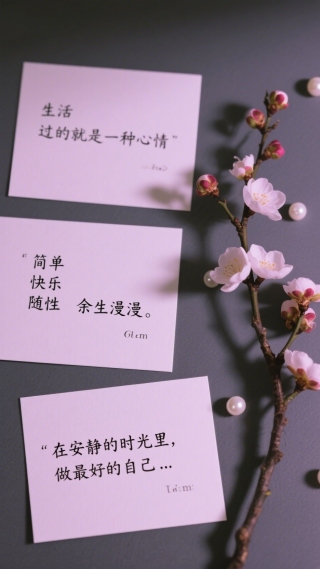 生活
过的就是一种心情”
“简单
快乐
随性 余生漫漫。
“在安静的时光里，
做最好的自己...